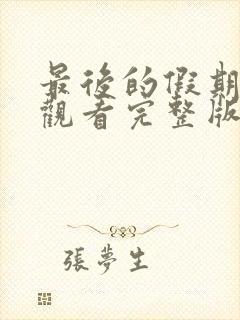 最後的假期
觀看完整版
張夢生